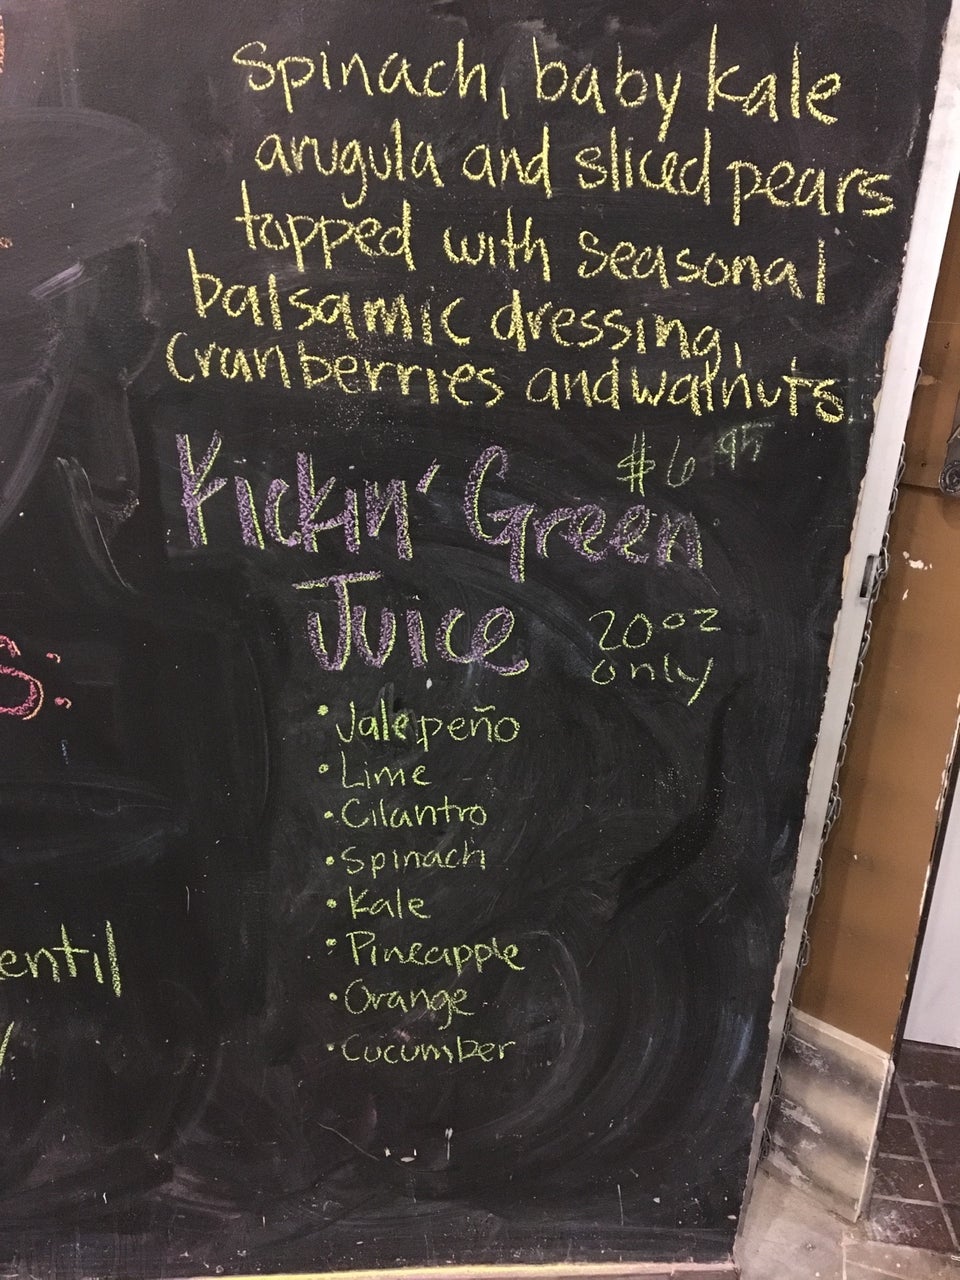 Spinach, baby kale
arugula and sliced pears
topped with seasonal
balsamic dressing,
Cranberries and walnuts
$6 95
Kickin' Green
Juice
20 oz
only
• Jalepeño
• Lime
• Cilantro
• Spinach
• Kale
• Pineapple
• Orange
• Cucumber
entil